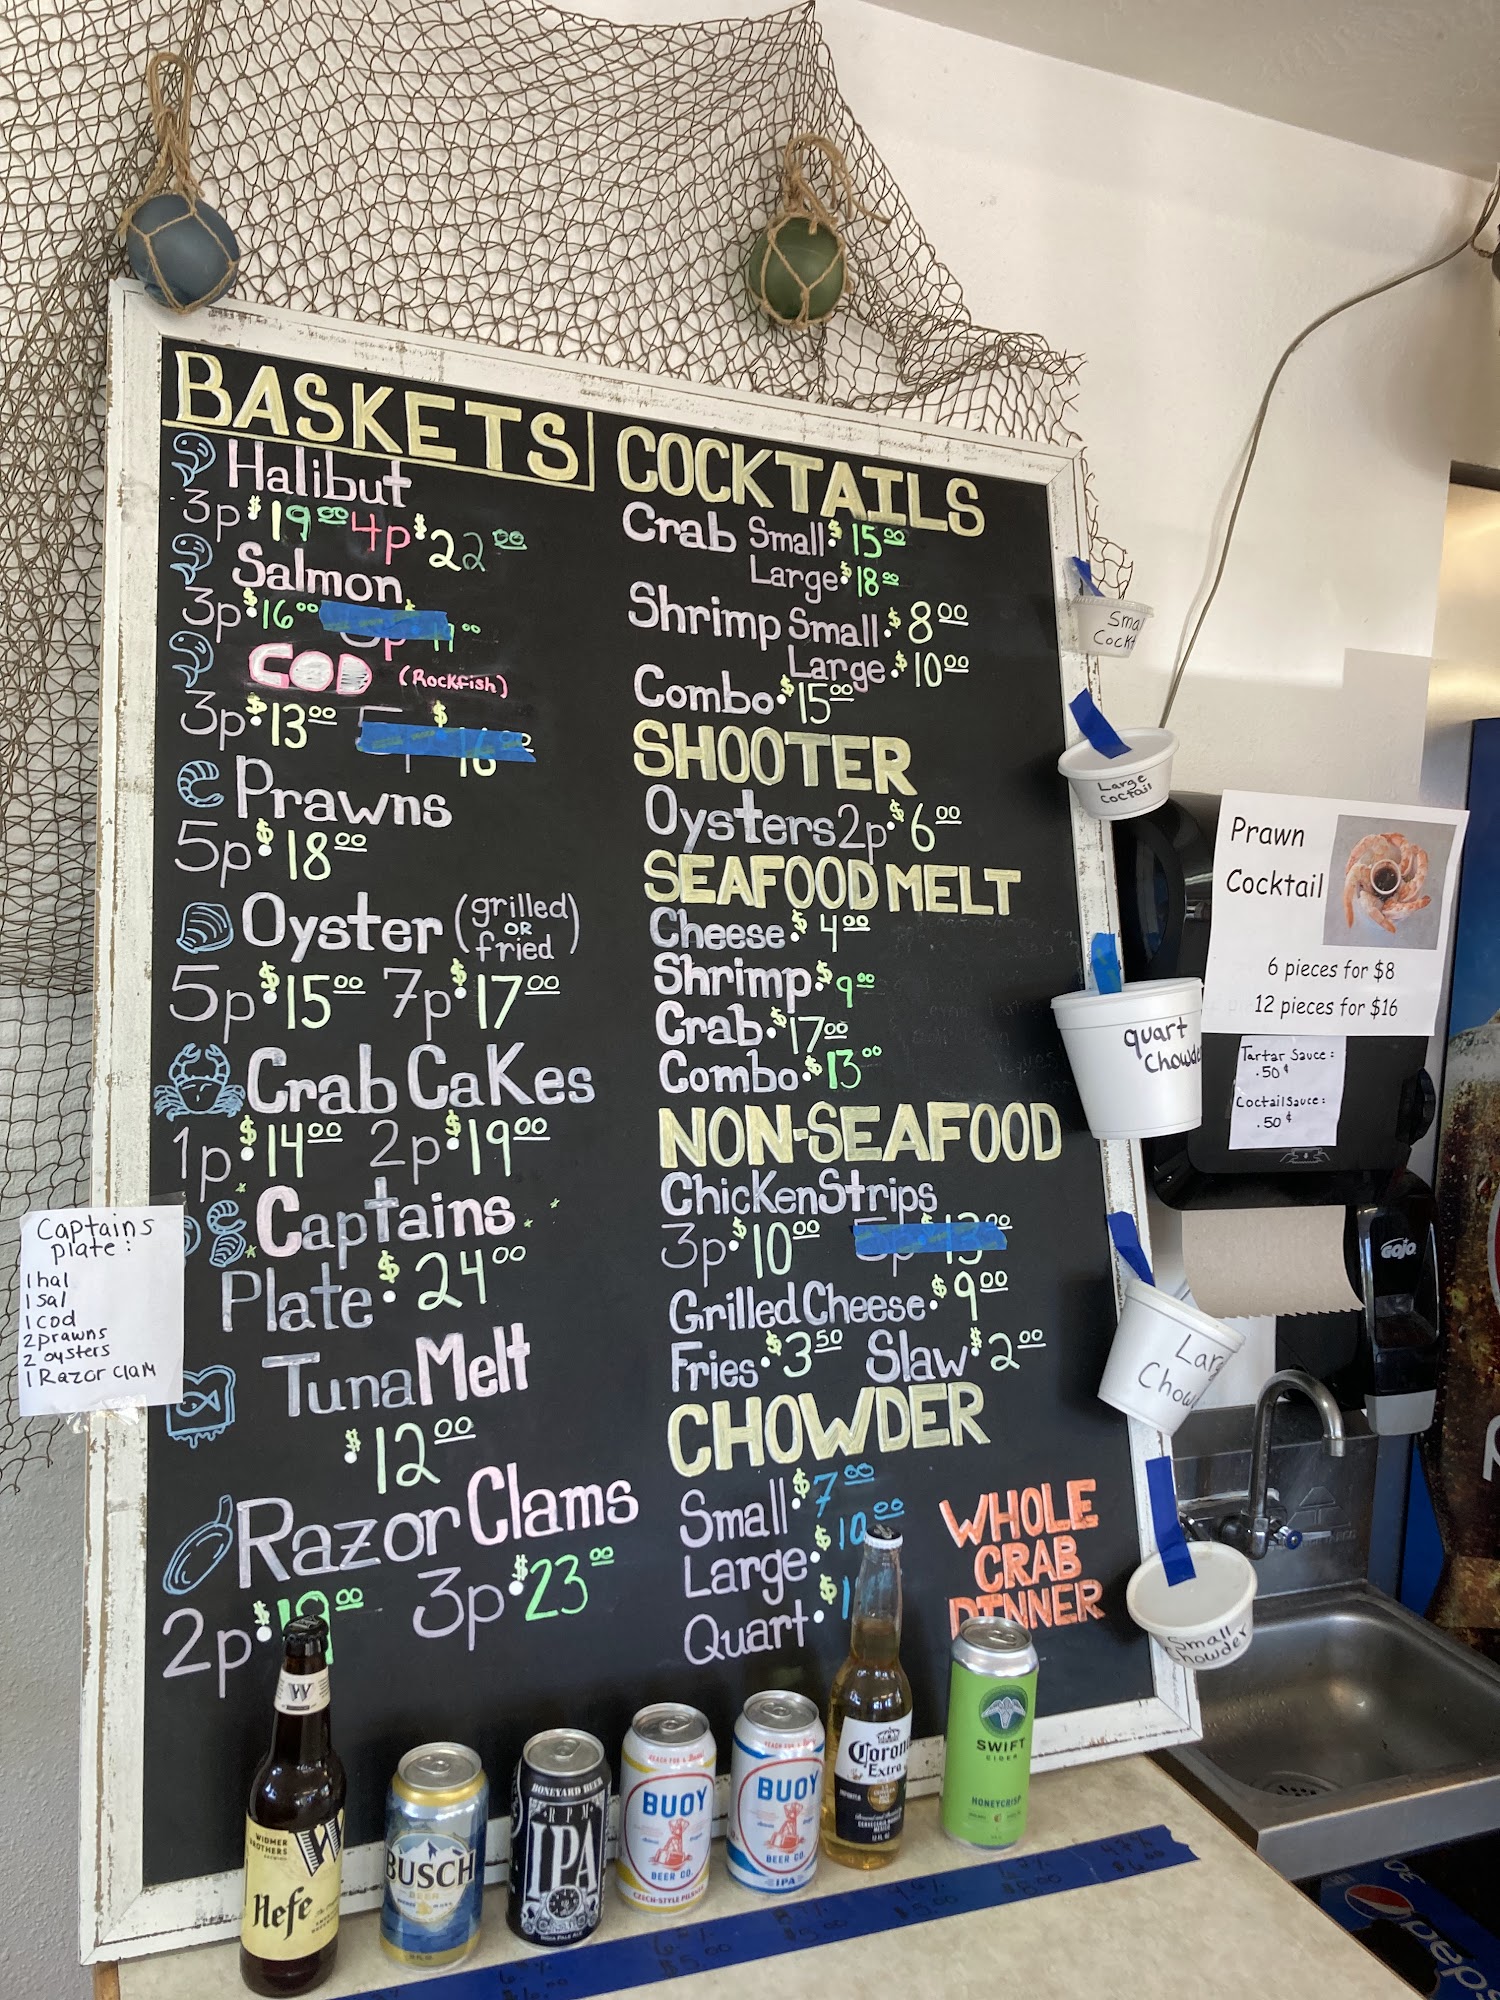 BASKETS
Halibut
3p $19.00 4p $22.00
Salmon
3p $16.00
COD (Rockfish)
3p $13.00
Prawns
5p $18.00
Oyster (grilled OR fried)
5p $15.00 7p $17.00
Crab Cakes
1p $14.00 2p $19.00
Captains
Plate $24.00
Tuna Melt
$12.00
Razor Clams
2p 3p $23.00
COCKTAILS
Crab Small $15.00
Large $18.00
Shrimp Small $8.00
Large $10.00
Combo $15.00
SHOOTER
Oysters 2p $6.00
SEAFOOD MELT
Cheese $4.00
Shrimp $9.00
Crab $17.00
Combo $13.00
NON-SEAFOOD
Chicken Strips
3p $10.00
Grilled Cheese $9.00
Fries $3.50 Slaw $2.00
CHOWDER
Small $7.00
Large $10.00
Quart
WHOLE
CRAB
DINNER
Captains
plate:
1 hal
1 sal
1 cod
2 prawns
2 oysters
1 Razor clam
Large
Coctail
quart
Small
Chowder
Prawn
Cocktail
6 pieces for $8
12 pieces for $16
Tartar Sauce:
.50¢
Coctail sauce:
.50¢
GOJO
W
WIDMER
BROTHERS
Hefe
BUSCH
BEER
BONEYARD BEER
RPM
IPA
INDIA PALE ALE
BUOY
BEER CO.
CZECH-STYLE PILSNER
BUOY
BEER CO.
IPA
Corona
Extra
SWIFT
CIDER
HONEYCRISP
pepsi